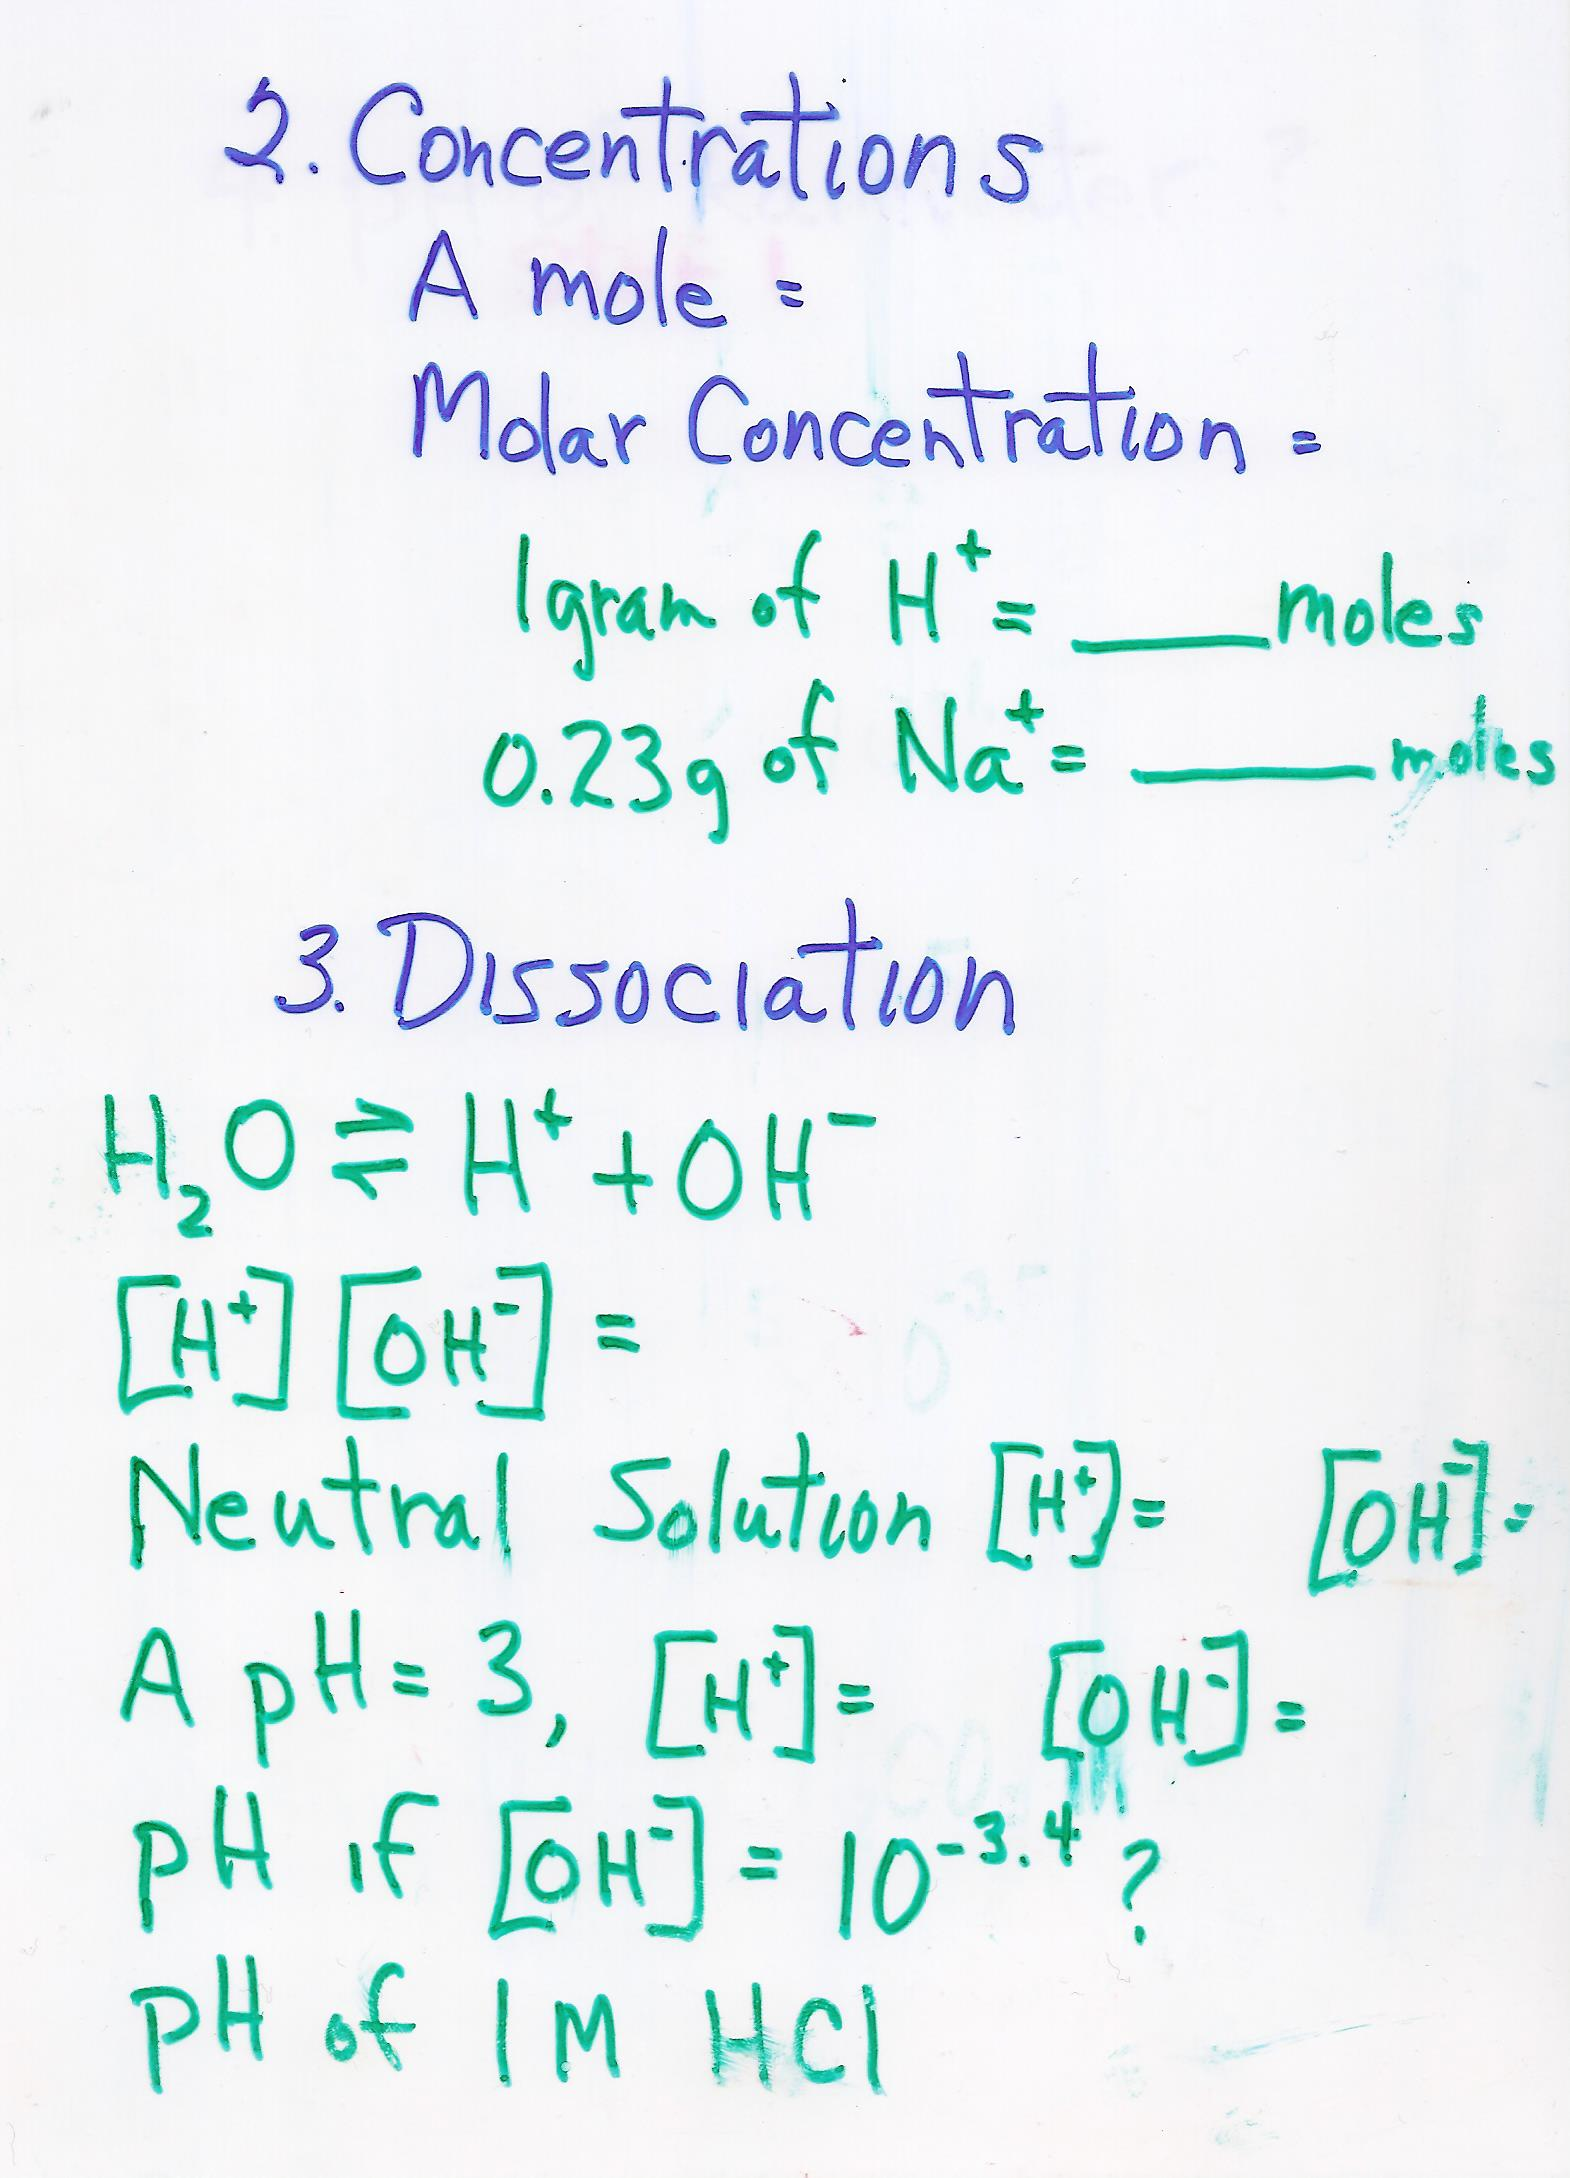 2. Concentrations
A mole =
Molar Concentration =
1 gram of H⁺ = ____ moles
0.23g of Na⁺ = ____ moles
3. Dissociation
H₂O ⇌ H⁺ + OH⁻
[H⁺] [OH⁻] =
Neutral Solution [H⁺] = [OH⁻] =
A pH = 3, [H⁺] = [OH⁻] =
pH if [OH⁻] = 10⁻³·⁴ ?
pH of 1M HCl